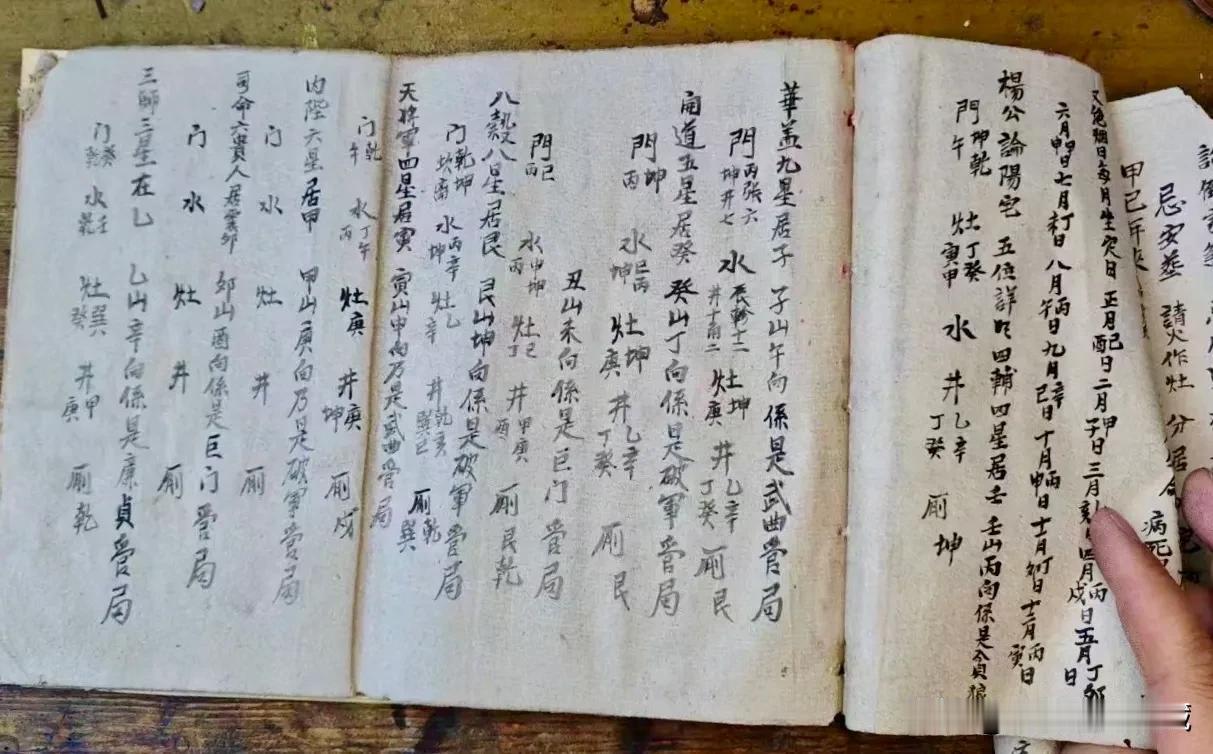 忌安葬 請火作灶 分居
病死
甲巳年
又絕烟日每月坐定日 正月巳酉日二月甲子日三月癸 四月丙戌日五月丁卯日
六月甲申日七月丁未日 八月丙午日九月辛巳日十月丙申日十一月丁卯日十二月丙寅日
楊公論陽宅 五位詳明 四輔四星居壬 壬山丙向係是貪狼
門坤乾午 灶丁癸寅甲 水 井乙辛丁癸 厠坤
華盖九星居子 子山午向係是武曲管局
門丙張六坤井七 水辰軫十二井十扇二 灶坤庚 井乙辛丁癸 厠艮
開道五星居癸 癸山丁向係是破軍管局
門坤丙 水巳丙坤 灶坤庚 井乙辛丁癸 厠艮
丑山未向係是巨門管局
門巳丙 水申坤丙 灶巳丁 井甲庚酉 厠艮乾
八穀八星居艮 艮山坤向係是破軍管局
门乾坤坎 水丙辛坤 灶乙辛 井乾亥巽巳 厠乾巽
天將軍四星居寅 寅山申向乃是武曲管局
门乾午 水丁午丙 灶庚 井庚坤 厠戌
内陛六星居甲 甲山庚向乃是破軍管局
门 水 灶 井 厠
司命六貴人居雲卯 卯山酉向係是巨门管局
门 水 灶 井 厠
三師三星在乙 乙山辛向係是廉貞管局
门癸乾 水壬乾 灶巽癸 井甲庚 厠乾